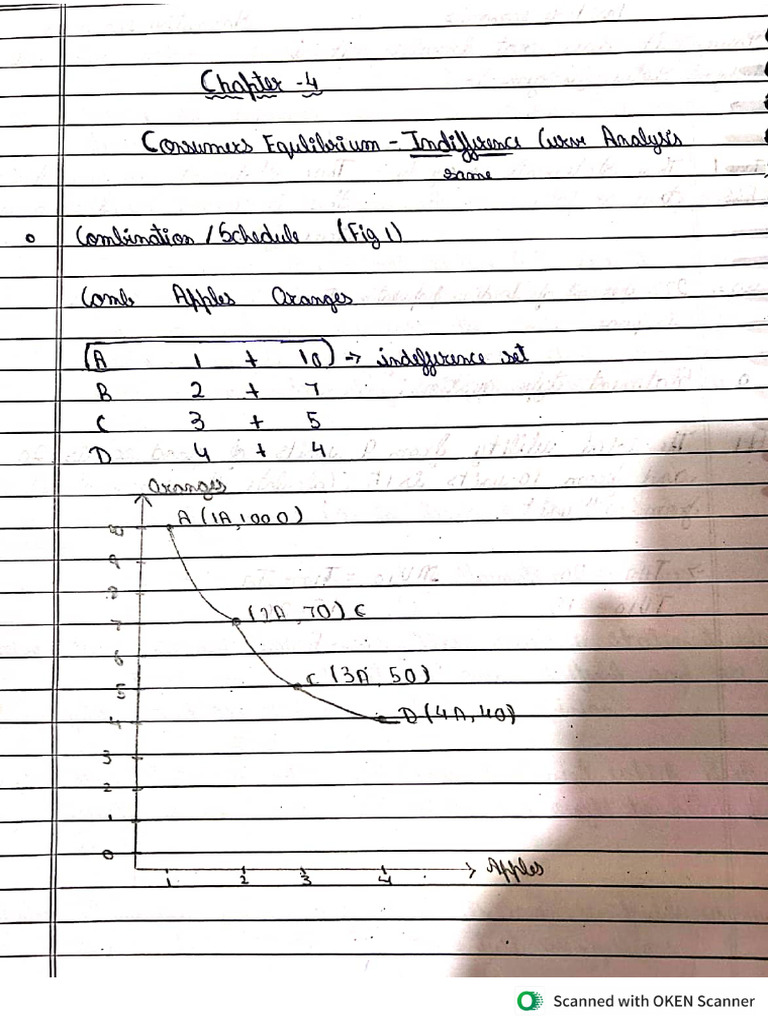 Chapter - 4
Consumers Equilibrium - Indifference Curve Analysis
same
o Combination / Schedule (Fig 1)
Comb Apples Oranges
(A 1 + 10) → indefference set
B 2 + 7
C 3 + 5
D 4 + 4
Oranges
A (1A, 10 0)
10
9
8
(2A, 70) C
7
6
C (3A, 50)
5
D (4A, 40)
4
3
2
1
0
1 2 3 4 → Apples
Scanned with OKEN Scanner